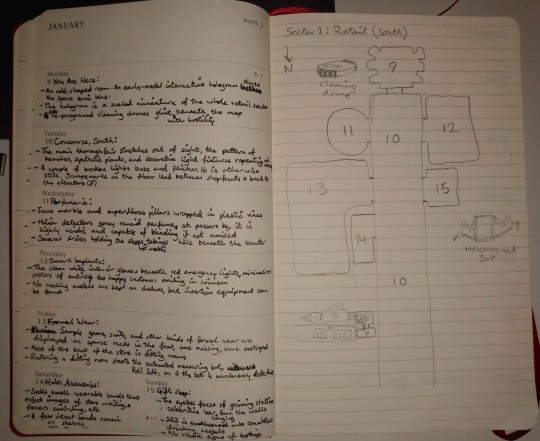 JANUARY
week 2
Monday
9 You Are Here:
- An odd-shaped room. An early-model interactive hologram
the space sonic blue.
- The hologram is a scaled miniature of the whole retail sector
- reprogramed cleaning drones glide beneath the map
with hostility
Tuesday
10 Concourse, South:
- The main thoroughfare stretches out of sight, the pattern of
benches, synthetic plants, and decorative light fixtures repeating
- A couple of broken lights buzz and flicker. It is otherwise
static. Scrapemarks on the floor lead between shopfronts & back to
the elevators (8)
Wednesday
11 Perfumerie:
- Faux marble and superfluous pillars wrapped in plastic vines
- Motion detectors spray rancid perfume at passers by, it is
highly acidic and capable of blinding if not avoided
- Several drives holding the shops takings
are beneath the counter
Thursday
12 Smart Implants:
- The clean white interior glows beneath red emergency lights, minimalist
posters of entirely too happy customers smiling in crimson
- No working models are kept on shelves, but insertion equipment can
be found.
Friday
13 Formal Wear:
- Sample gowns, suits, and other kinds of formal wear are
displayed on sparse racks in the front, some missing, some destroyed
- Most of the back of the store is fitting rooms
- Entering a fitting room starts the automated measuring bot,
Roll 1d6, on 6 the bot is murderously defective
Saturday
14 Holo Accessories:
- Sells small wearable bands that
project images of stars whirling,
flowers swirling, etc
- A few intact bands remain
on shelves.
Sunday
15 Gift Shop:
- The eyeless faces of grinning station
celebrities leer from the walls
hanging
drinking vessels
- No visible signs of looting
Sector 1: Retail (South)
N
cleaning
drone
9
10
11
12
13
14
15
Measurement
Bot
10